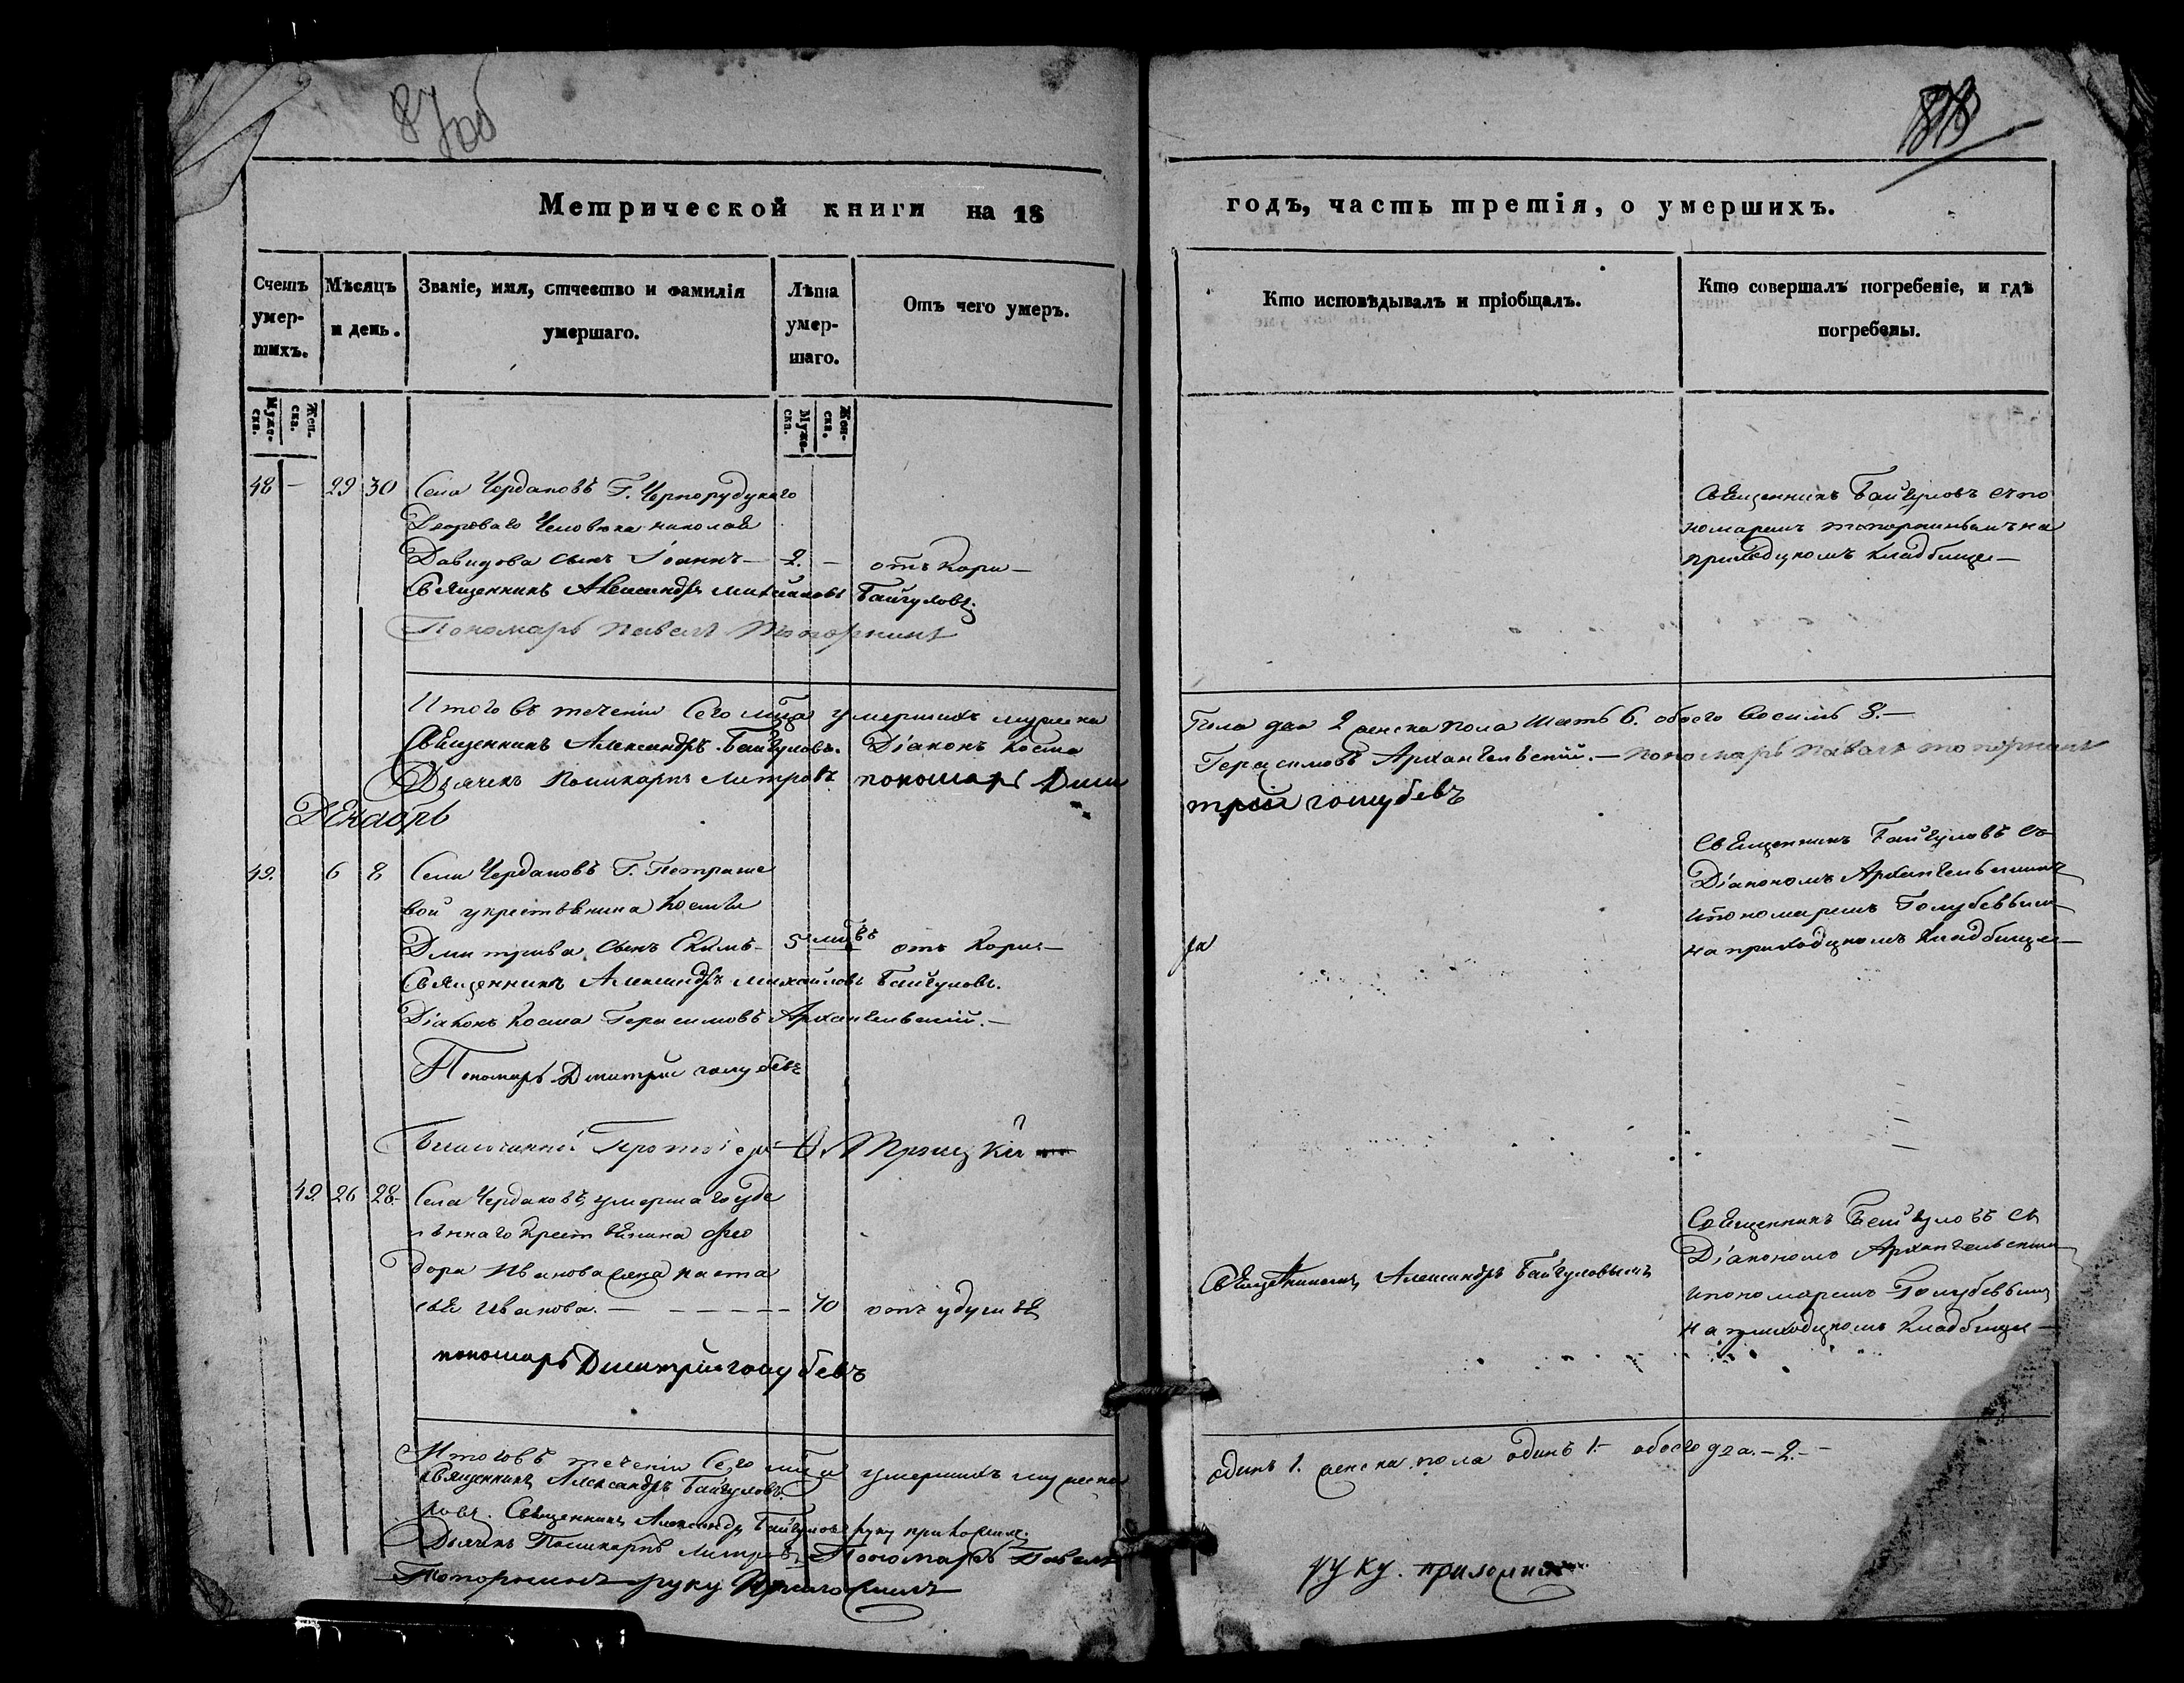 87об
Метрической книги на 18
годъ, часть третія, о умершихъ.
Счетъ умер-шихъ.
Мѣсяцъ и день.
Званіе, имя, отчество и фамилія умершаго.
Лѣта умер-шаго.
Отъ чего умеръ.
Кто исповѣдывалъ и пріобщалъ.
Кто совершалъ погребеніе, и гдѣ погребены.
Муже-ска.
Жен-ска.
Муже-ска.
Жен-ска.
48 — 29 30 Села Чердаковъ Г.
Двороваго Человека николая
Давидова сынъ Іоаннъ — 2. — отъ Кори —
Священникъ Александръ Михайловъ Байгуловъ.
Пономарь Павелъ Топорнинъ
Священникъ Байгуловъ съ по
номаремъ топорнинымъ на
приходскомъ кладбище —
Итого въ теченіи Сего мца умершихъ мужеска
Священникъ Александръ Байгуловъ. Діаконъ Косма
Дьячекъ Поликарпъ пономарь Дми
Пола два 2 женска пола шесть 6. обоего восемь 8. —
Герасимовъ Архангельскій. — пономарь Павелъ топорнинъ
трій голубевъ
Декабрь
49. 6 8 Села Чердаковъ Г.
вой крестьянина Космы
Дмитріева сынъ Екимъ — 5 отъ Кори —
Священникъ Александръ михайловъ Байгуловъ.
Діаконъ Косма Герасимовъ Архангельскій. —
Пономарь Дмитрій голубевъ
Священникъ Байгуловъ съ
Діакономъ Архангельскимъ
и пономаремъ Голубевымъ
на приходскомъ кладбище —
Благочинный Протоіерей Троицкій
49 26 28 Села Чердаковъ, умершаго уде
льнаго крестьянина Фео
дора Иванова жена наста
сья Иванова. — — — — — 70 отъ удушья
пономарь Дмитрій голубевъ
Священникомъ Александромъ Байгуловымъ
Священникъ Байгуловъ съ
Діакономъ Архангельскимъ
и пономаремъ Голубевымъ
на приходскомъ кладбище —
Итого въ теченіи Сего мца умершихъ мужеска
Священникъ Александръ Байгуловъ.
Священникъ Александръ Байгуловъ руку приложилъ.
Дьячекъ Поликарпъ Пономарь Павелъ
Топорнинъ руку Приложилъ
одинъ 1. женска пола одинъ 1. — обоего два. — 2. —
руку. приложилъ